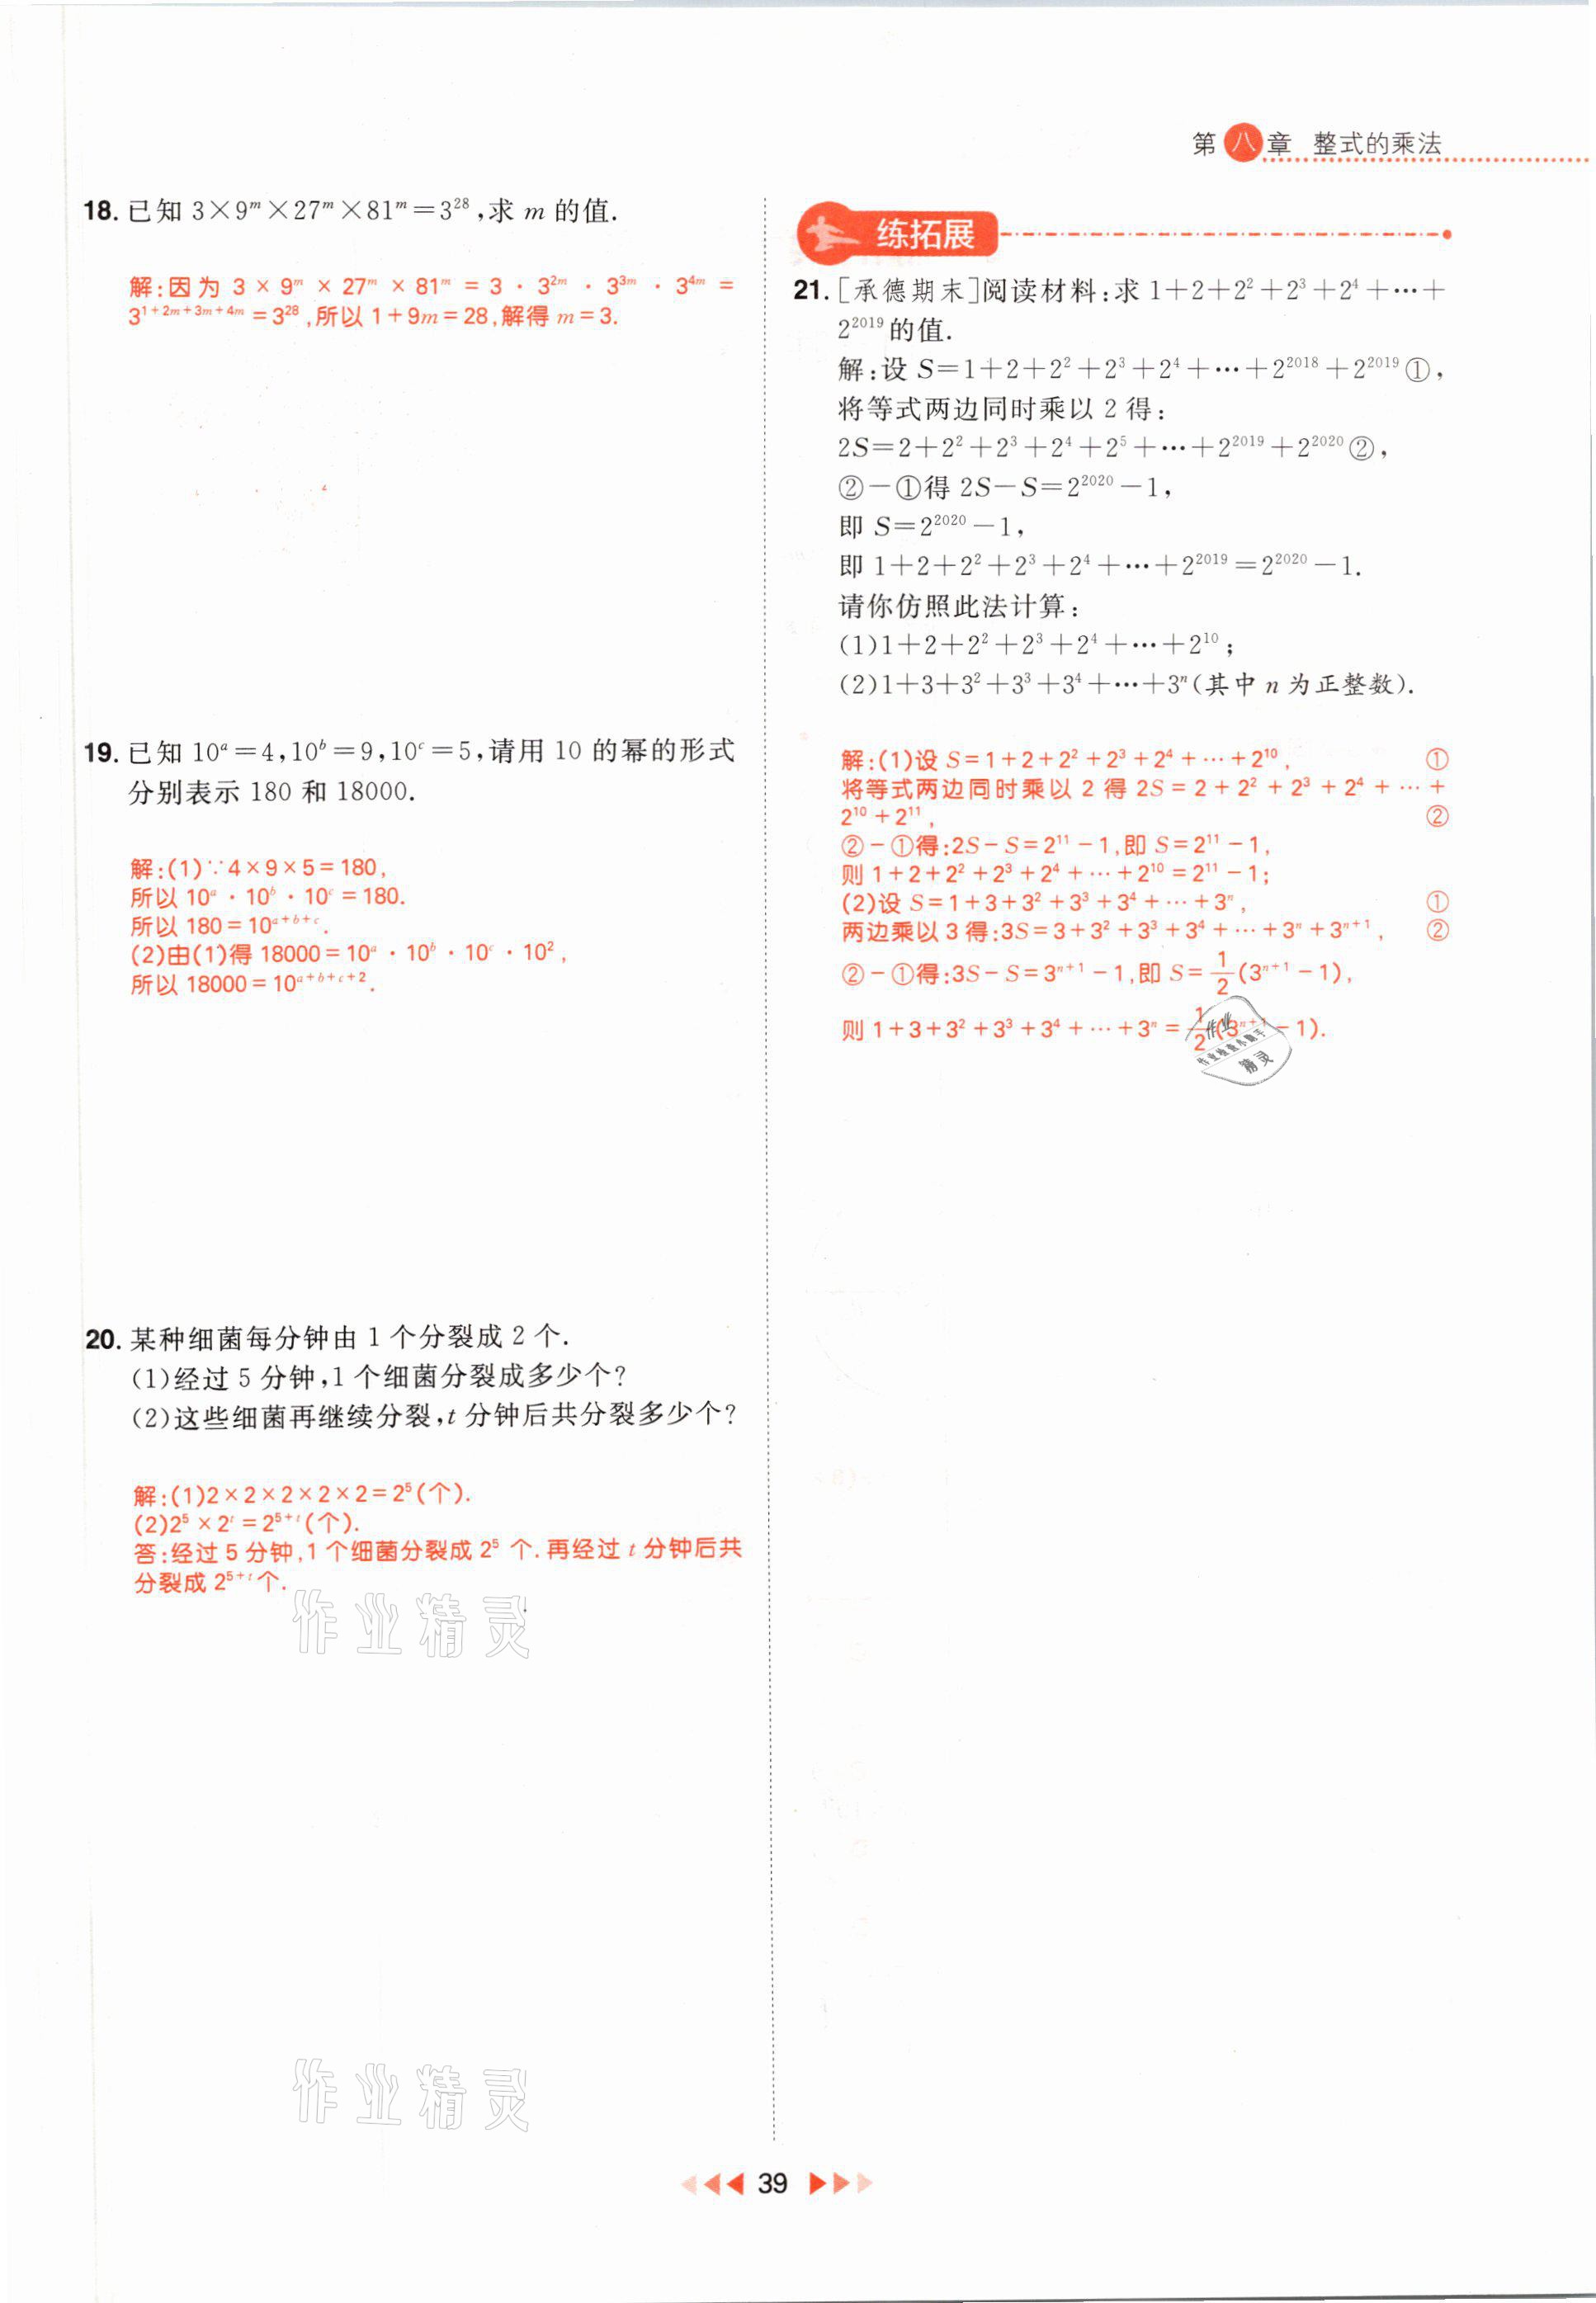 第八章 整式的乘法
18. 已知 3×9ᵐ×27ᵐ×81ᵐ=3²⁸,求 m 的值.
解:因为 3 × 9ᵐ × 27ᵐ × 81ᵐ = 3 · 3²ᵐ · 3³ᵐ · 3⁴ᵐ =
3¹⁺²ᵐ⁺³ᵐ⁺⁴ᵐ=3²⁸,所以 1+9m=28,解得 m=3.
19. 已知 10ᵃ=4,10ᵇ=9,10ᶜ=5,请用 10 的幂的形式
分别表示 180 和 18000.
解:(1)∵4×9×5=180,
所以 10ᵃ·10ᵇ·10ᶜ=180.
所以 180=10ᵃ⁺ᵇ⁺ᶜ.
(2)由(1)得 18000=10ᵃ·10ᵇ·10ᶜ·10²,
所以 18000=10ᵃ⁺ᵇ⁺ᶜ⁺².
20. 某种细菌每分钟由 1 个分裂成 2 个.
(1)经过 5 分钟,1 个细菌分裂成多少个?
(2)这些细菌再继续分裂,t 分钟后共分裂多少个?
解:(1)2×2×2×2×2=2⁵(个).
(2)2⁵×2ᵗ=2⁵⁺ᵗ(个).
答:经过 5 分钟,1 个细菌分裂成 2⁵ 个.再经过 t 分钟后共
分裂成 2⁵⁺ᵗ个.
作业精灵
作业精灵
练拓展
21. [承德期末]阅读材料:求 1+2+2²+2³+2⁴+…+
2²⁰¹⁹的值.
解:设 S=1+2+2²+2³+2⁴+…+2²⁰¹⁸+2²⁰¹⁹①,
将等式两边同时乘以 2 得:
2S=2+2²+2³+2⁴+2⁵+…+2²⁰¹⁹+2²⁰²⁰②,
②-①得 2S-S=2²⁰²⁰-1,
即 S=2²⁰²⁰-1,
即 1+2+2²+2³+2⁴+…+2²⁰¹⁹=2²⁰²⁰-1.
请你仿照此法计算:
(1)1+2+2²+2³+2⁴+…+2¹⁰;
(2)1+3+3²+3³+3⁴+…+3ⁿ(其中 n 为正整数).
解:(1)设 S=1+2+2²+2³+2⁴+…+2¹⁰, ①
将等式两边同时乘以 2 得 2S=2+2²+2³+2⁴+…+
2¹⁰+2¹¹, ②
②-①得:2S-S=2¹¹-1,即 S=2¹¹-1,
则 1+2+2²+2³+2⁴+…+2¹⁰=2¹¹-1;
(2)设 S=1+3+3²+3³+3⁴+…+3ⁿ, ①
两边乘以 3 得:3S=3+3²+3³+3⁴+…+3ⁿ+3ⁿ⁺¹, ②
②-①得:3S-S=3ⁿ⁺¹-1,即 S=1/2(3ⁿ⁺¹-1),
则 1+3+3²+3³+3⁴+…+3ⁿ=1/2(3ⁿ⁺¹-1).
作业
作业检查小助手
精灵
39